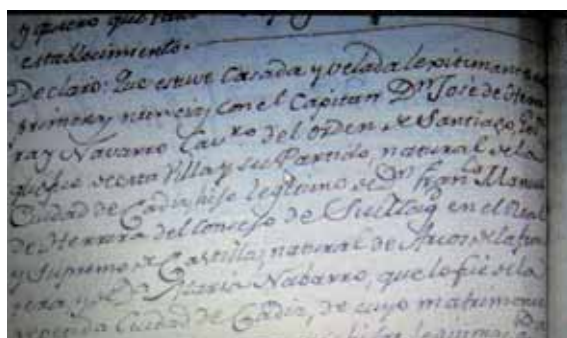 y quiero que
establecimiento.
Declaro: Que estuve Casada y velada lexitimamente
primeras nuncias con el Capitan Dn. Josè de Herre
ra y Navarro Cavro del orden de Santiago,
que fue de esta Villa y su Partido, natural de la
Ciudad de Cadiz, hijo legitimo de Dn. Franco. Manuel
de Herrera del Consejo de en el Real
y Supremo de Castilla, natural de Arcos de la fron
tera, y de Da. Maria Nabarro, que lo fue de la
Ciudad de Cadiz, de cuyo matrimonio